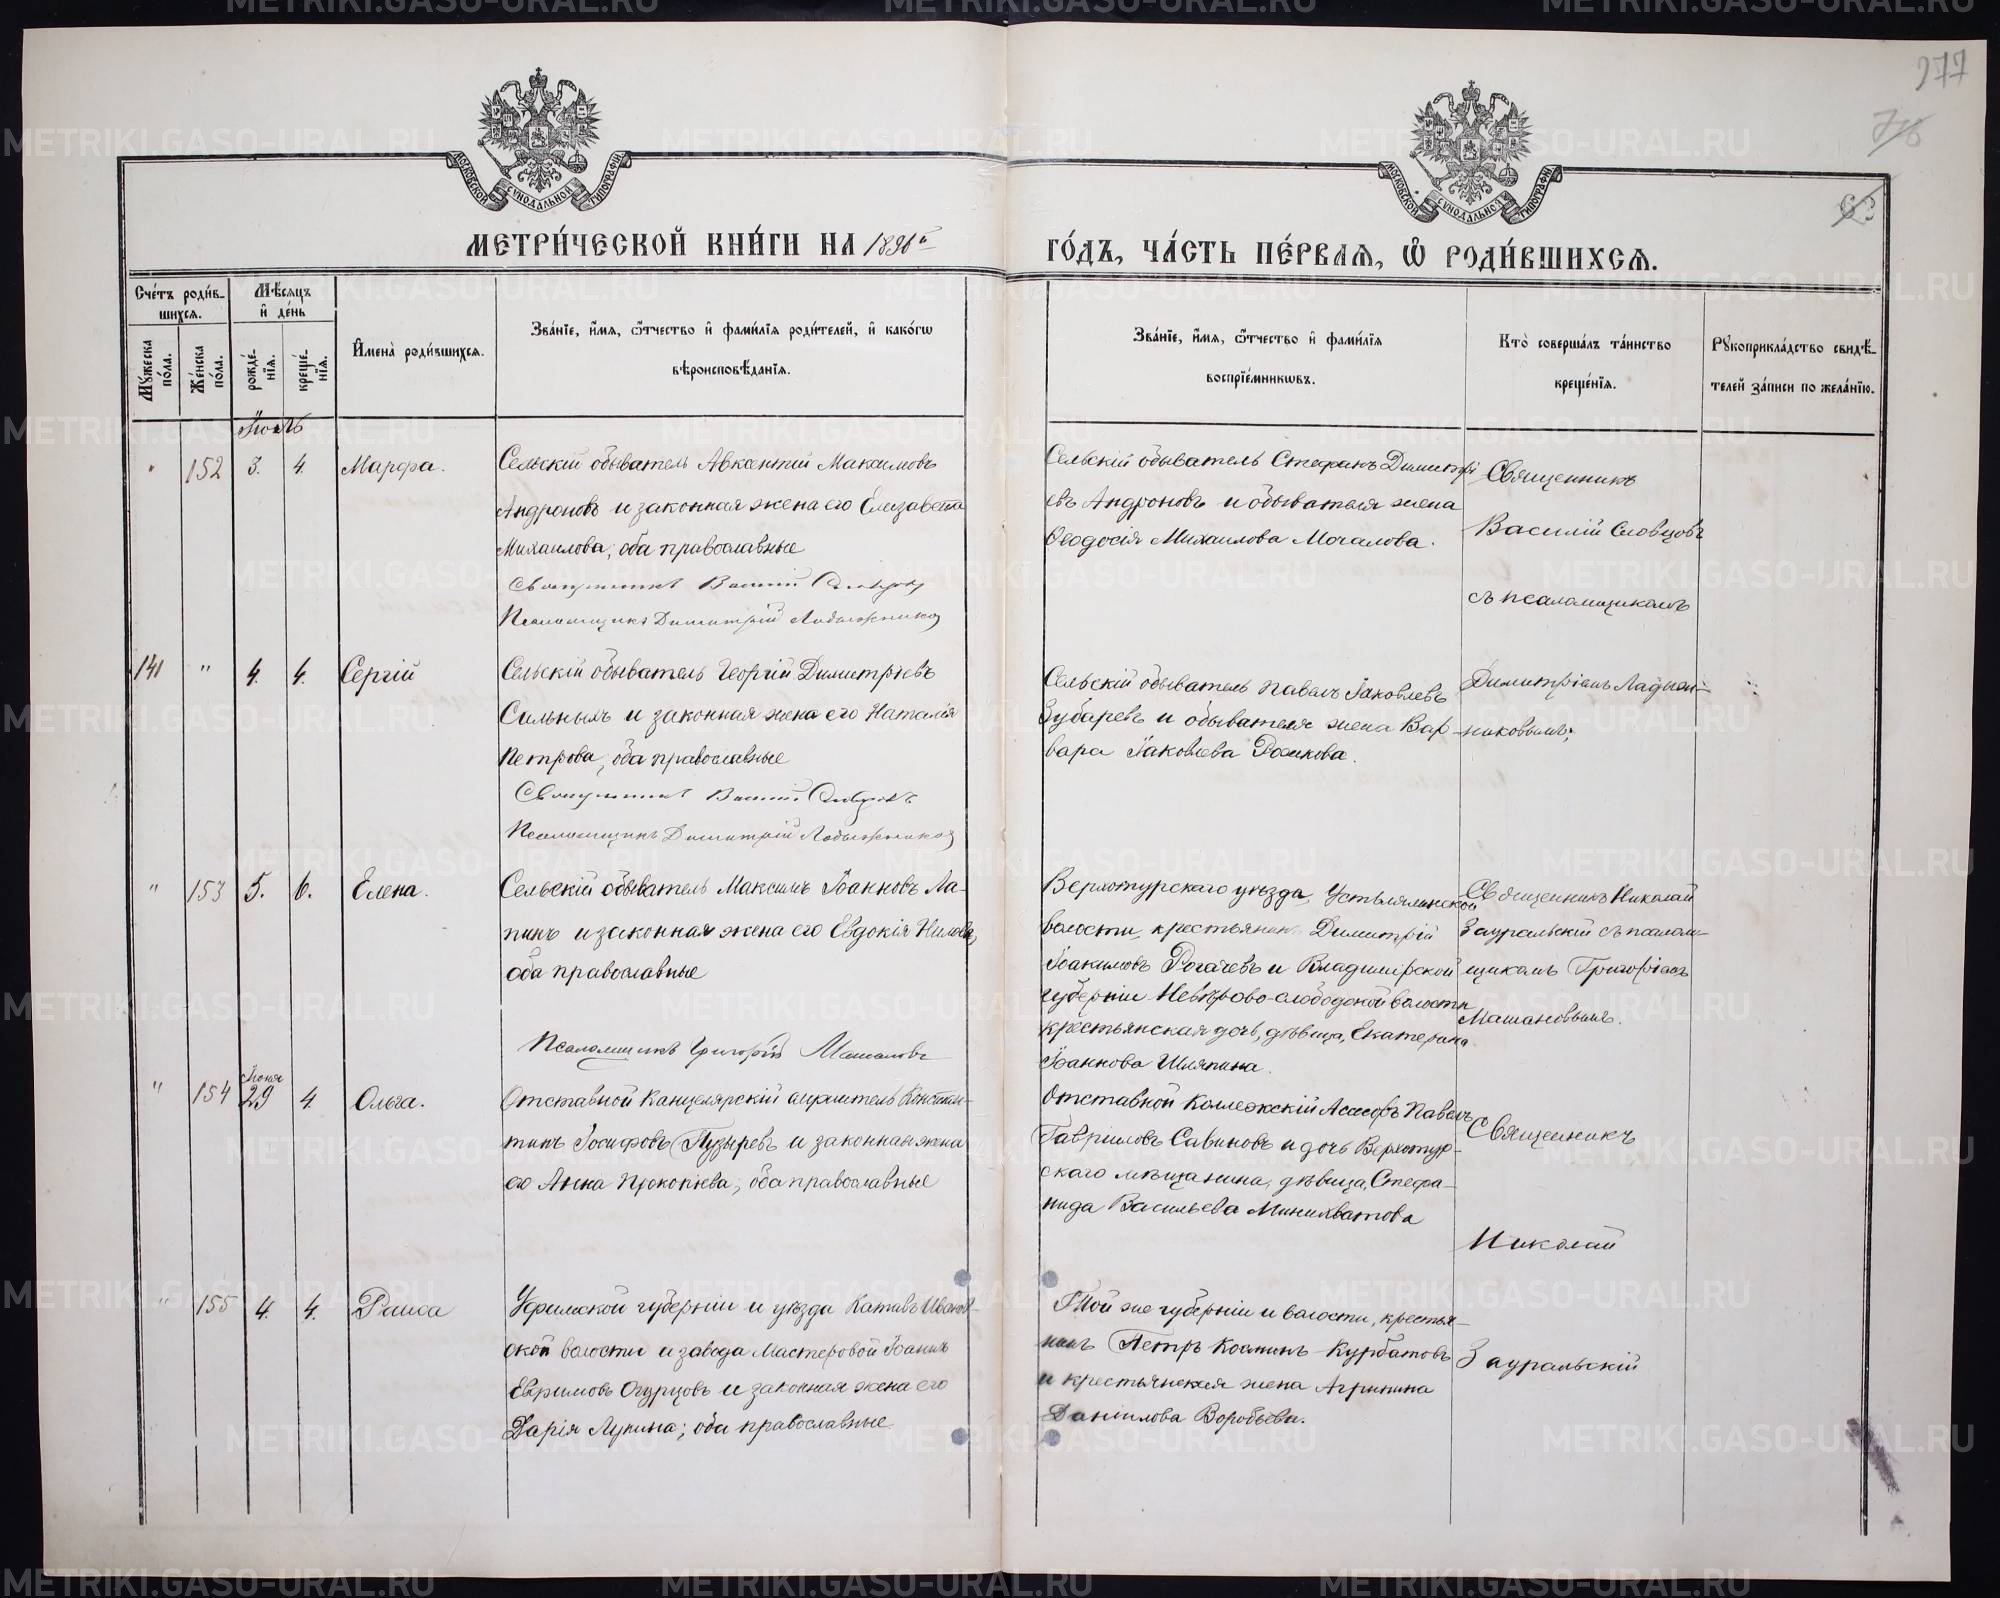 277
76
63
МОСКОВСКОЙ СѴНОДАЛЬНОЙ ТИПОГРАФІИ
МОСКОВСКОЙ СѴНОДАЛЬНОЙ ТИПОГРАФІИ
МЕТРИ́ЧЕСКОЙ КНИ́ГИ НА 1896й ГО́ДЪ, ЧА́СТЬ ПЕ́РВАѦ, Ѿ РОДИ́ВШИХСѦ.
Сче́тъ роди́в-
шихсѧ.
Мѣ́сѧцъ
и҆ де́нь
Мꙋ́жеска
по́ла.
Же́нска
по́ла.
рожде́-
нїѧ.
креще́-
нїѧ.
И҆мена̀ роди́вшихсѧ.
Зва́нїе, и҆́мѧ, ѻ҆́тчество и҆ фами́лїѧ роди́телей, и҆ како́гѡ
вѣроисповѣ́данїѧ.
Зва́нїе, и҆́мѧ, ѻ҆́тчество и҆ фами́лїѧ
воспрїе́мникѡвъ.
Кто̀ соверша́лъ та́инство
креще́нїѧ.
Рꙋкоприкла́дство свидѣ́-
телей за́писи по жела́нїю.
Іюль
" 152 3. 4. Марѳа.
Сельскій обыватель Авксентій Максимовъ
Андроновъ и законная жена его Елизавета
Михаилова, оба православные
Священникъ Василій Словцовъ
Псаломщикъ Димитрій Ладыжниковъ
Сельскій обыватель Стефанъ Димитрі
евъ Андроновъ и обывателя жена
Ѳеодосія Михаилова Мочалова.
Священникъ
Василій Словцовъ
съ псаломщикомъ
141 " 4. 4. Сергій
Сельскій обыватель Георгій Димитріевъ
Сильныхъ и законная жена его Наталія
Петрова, оба православные
Священникъ Василій Словцовъ
Псаломщикъ Димитрій Ладыжниковъ
Сельскій обыватель Павелъ Іаковлевъ
Зубаревъ и обывателя жена Вар-
вара Іаковлева
Димитріемъ Ладыж-
никовымъ;
" 153 5. 6. Елена.
Сельскій обыватель Максимъ Іоанновъ Ла-
пинъ и законная жена его Евдокія Нилова,
оба православные
Псаломщикъ Григорій Машановъ
Верхотурскаго уѣзда, Устьлялинской
волости, крестьянинъ Димитрій
Іоакимовъ Рогачевъ и Владимірской
губерніи Невѣрово-слободской волости
крестьянская дочь, дѣвица, Екатерина
Іоаннова Шляпина.
Священникъ Николай
Зауральскій съ псалом-
щикомъ Григоріемъ
Машановымъ.
Іюня
" 154 29 4. Ольга.
Отставной Канцелярскій служитель Констан-
тинъ Іосифовъ Пузыревъ и законная жена
его Анна Прокопіева, оба православные
Отставной Коллежскій Асесоръ Павелъ
Гавріиловъ Савиновъ и дочь Верхотур-
скаго мѣщанина, дѣвица, Стефа-
нида Васильева Минихватова
Священникъ
Николай
" 155 4. 4. Раиса
Уфимской губерніи и уѣзда Катавъ Иванов-
ской волости и завода Мастеровой Іоаннъ
Евфимовъ Огурцовъ и законная жена его
Дарія Лупина; оба православные.
Той же губерніи и волости, крестья-
нинъ Петръ Косминъ Курбатовъ
и крестьянская жена Агрипина
Даніилова Воробьева.
Зауральскій